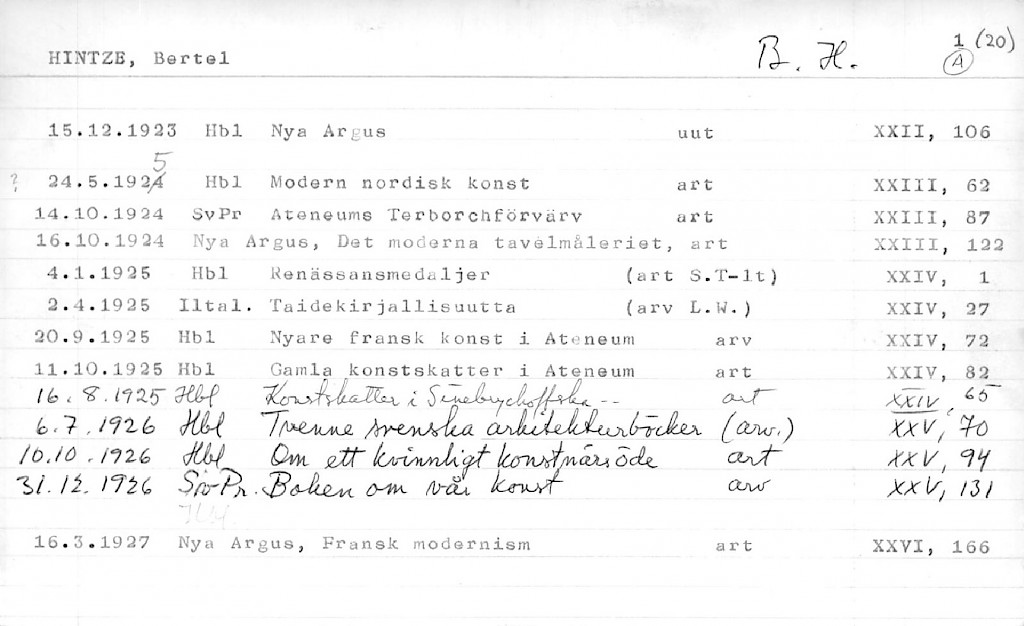 HINTZE, Bertel B. H. 1 (20)
A
15.12.1923 Hbl Nya Argus uut XXII, 106
5
? 24.5.1924 Hbl Modern nordisk konst art XXIII, 62
14.10.1924 SvPr Ateneums Terborchförvärv art XXIII, 87
16.10.1924 Nya Argus, Det moderna tavelmåleriet, art XXIII, 122
4.1.1925 Hbl Renässansmedaljer (art S.T-lt) XXIV, 1
2.4.1925 Iltal. Taidekirjallisuutta (arv L.W.) XXIV, 27
20.9.1925 Hbl Nyare fransk konst i Ateneum arv XXIV, 72
11.10.1925 Hbl Gamla konstskatter i Ateneum art XXIV, 82
16.8.1925 Hbl Konstskatter i Sinebrychoffska -- art XXIV, 65
6.7.1926 Hbl Tvenne svenska arkitekturböcker (arv.) XXV, 70
10.10.1926 Hbl Om ett kvinnligt konstnärsöde art XXV, 94
31.12.1926 Sv.Pr. Boken om vår konst arv XXV, 131
Hbl.
16.3.1927 Nya Argus, Fransk modernism art XXVI, 166